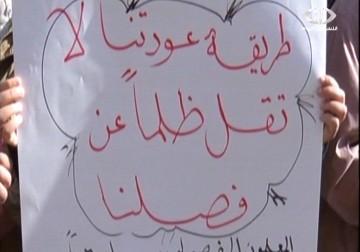 طريقة عودتنا لا
تقل ظلماً عن
فصلنا